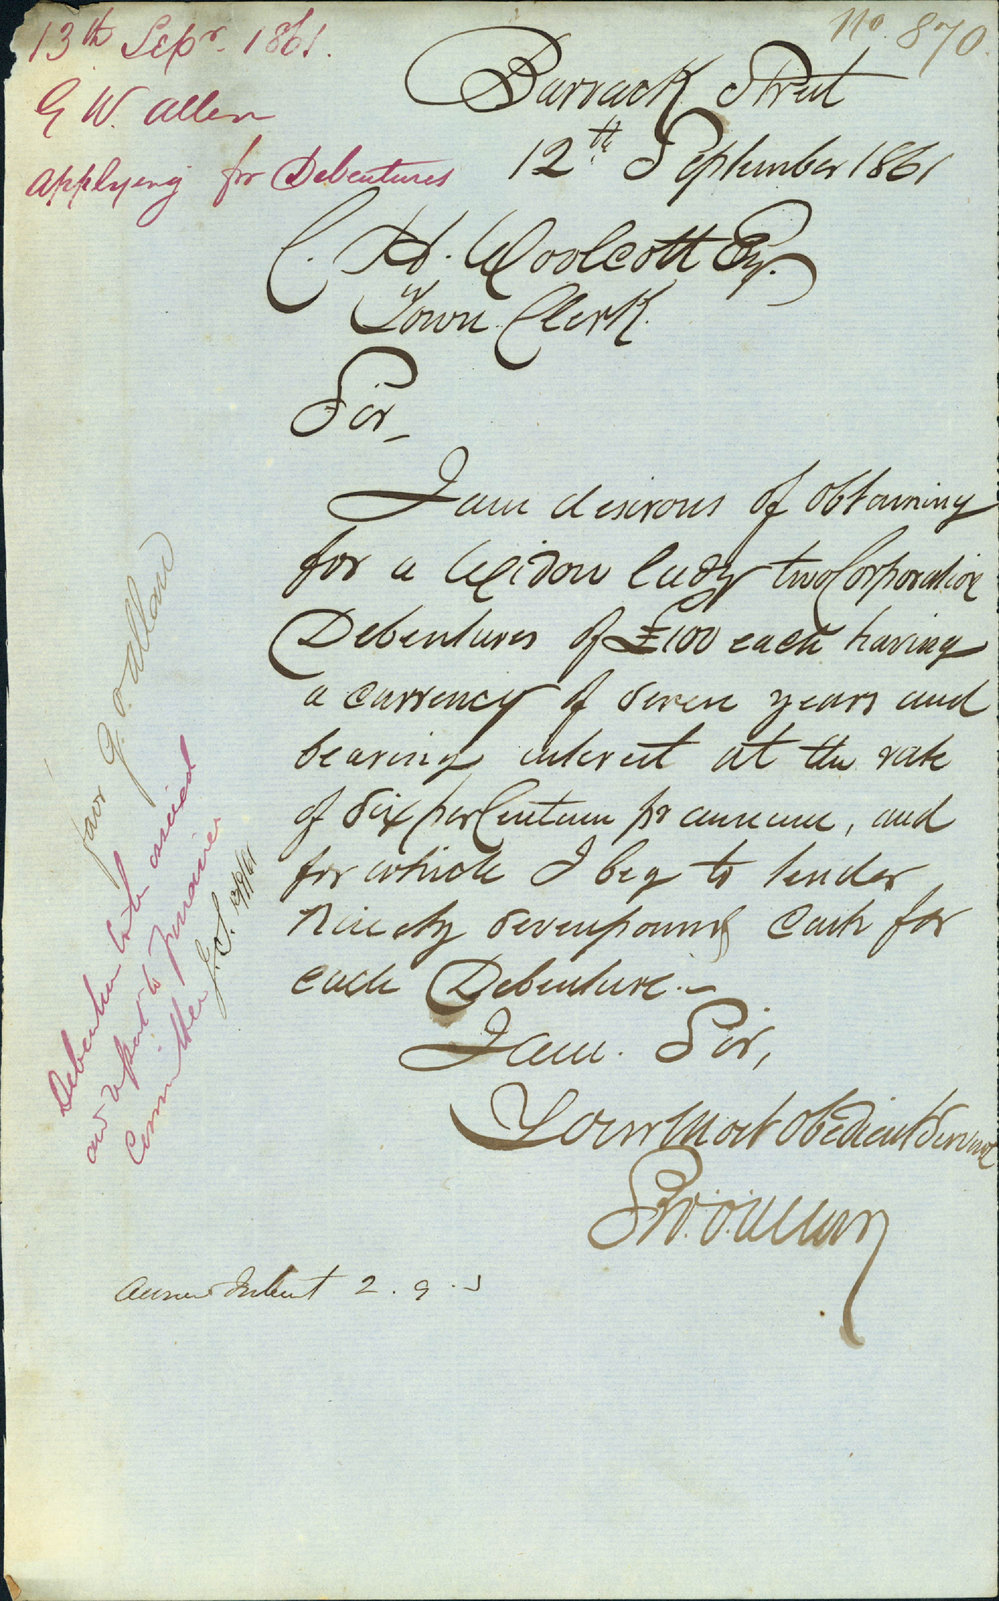 13th Sepr. 1861.
G W. Allen
Applying for Debentures
No. 870.
Barrack Street
12th. September 1861
C. H. Woolcott Esq.
Town Clerk.
Sir,
I am desirous of obtaining
for a Widow lady two Corporation
Debentures of £100 each having
a currency of seven years and
bearing interest at the rate
of six per Centum pr annum, and
for which I beg to tender
Ninety seven pounds Cash for
each Debenture.
I am. Sir,
Your Most Obedient Servant
Debentures to be issued
and report to Finance
Committee
Accrued Interest 2. 9.